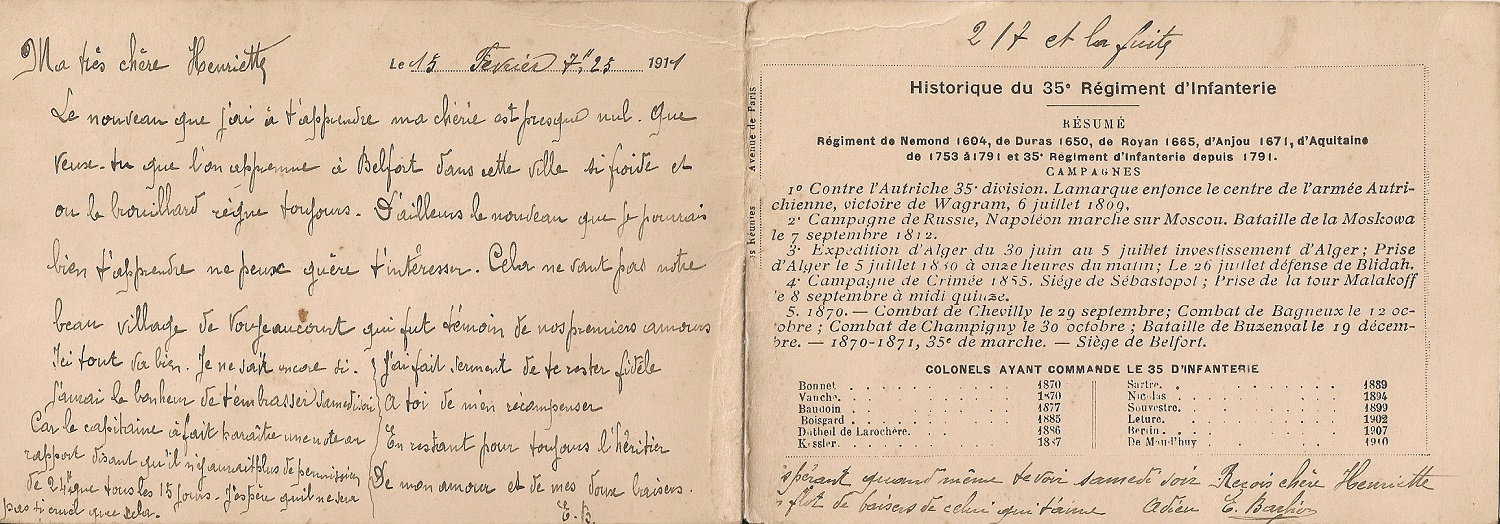 Ma très chère Henriette
Le 15 Fevrier 7H 25 1911
Le nouveau que j'ai à t'apprendre ma chérie est presque nul. Que
veux-tu que l'on apprenne à Belfort dans cette ville si froide et
ou le brouillard règne toujours. D'ailleurs le nouveau que je pourrais
bien t'apprendre ne peux guère t'intéresser. Cela ne vaut pas notre
beau village de Voujeaucourt qui fut témoin de nos premiers amours
Ici tout va bien. Je ne sait encore si
j'aurai le bonheur de t'embrasser samedi soir
Car le capitaine à fait paraître une note au
rapport disant qu'il n'y aurait plus de permission
de 24H que tous les 15 jours. J'espère qu'il ne sera
pas si cruel que cela.
J'ai fait serment de te rester fidèle
A toi de m'en récompenser
En restant pour toujours l'héritier
De mon amour et de mes doux baisers.
E. B.
is Réunies Avenue de Paris
217 et la suite
Historique du 35e Régiment d'Infanterie
RÉSUMÉ
Régiment de Nemond 1604, de Duras 1650, de Royan 1665, d'Anjou 1671, d'Aquitaine
de 1753 à 1791 et 35e Regiment d'Infanterie depuis 1791.
CAMPAGNES
1o Contre l'Autriche 35e division. Lamarque enfonce le centre de l'armée Autri-
chienne, victoire de Wagram, 6 juillet 1809.
2e Campagne de Russie, Napoléon marche sur Moscou. Bataille de la Moskowa
le 7 septembre 1812.
3e Expedition d'Alger du 30 juin au 5 juillet investissement d'Alger; Prise
d'Alger le 5 juillet 1830 à onze heures du matin; Le 26 juillet défense de Blidah.
4e Campagne de Crimée 1855. Siège de Sébastopol; Prise de la tour Malakoff
le 8 septembre à midi quinze.
5. 1870. — Combat de Chevilly le 29 septembre; Combat de Bagneux le 12 oc-
tobre; Combat de Champigny le 30 octobre; Bataille de Buzenval le 19 décem-
bre. — 1870-1871, 35e de marche. — Siège de Belfort.
COLONELS AYANT COMMANDE LE 35 D'INFANTERIE
Bonnet 1870
Vanche 1870
Baudoin 1877
Boisgard 1885
Dutheil de Larochère 1886
Kessler 1887
Sartre 1889
Nicolas 1894
Souvestre 1899
Leture 1902
Berdin 1907
De Maud'huy 1910
spérant quand même te voir samedi soir Reçois chère Henriette
flot de baisers de celui qui t'aime Adieu E.